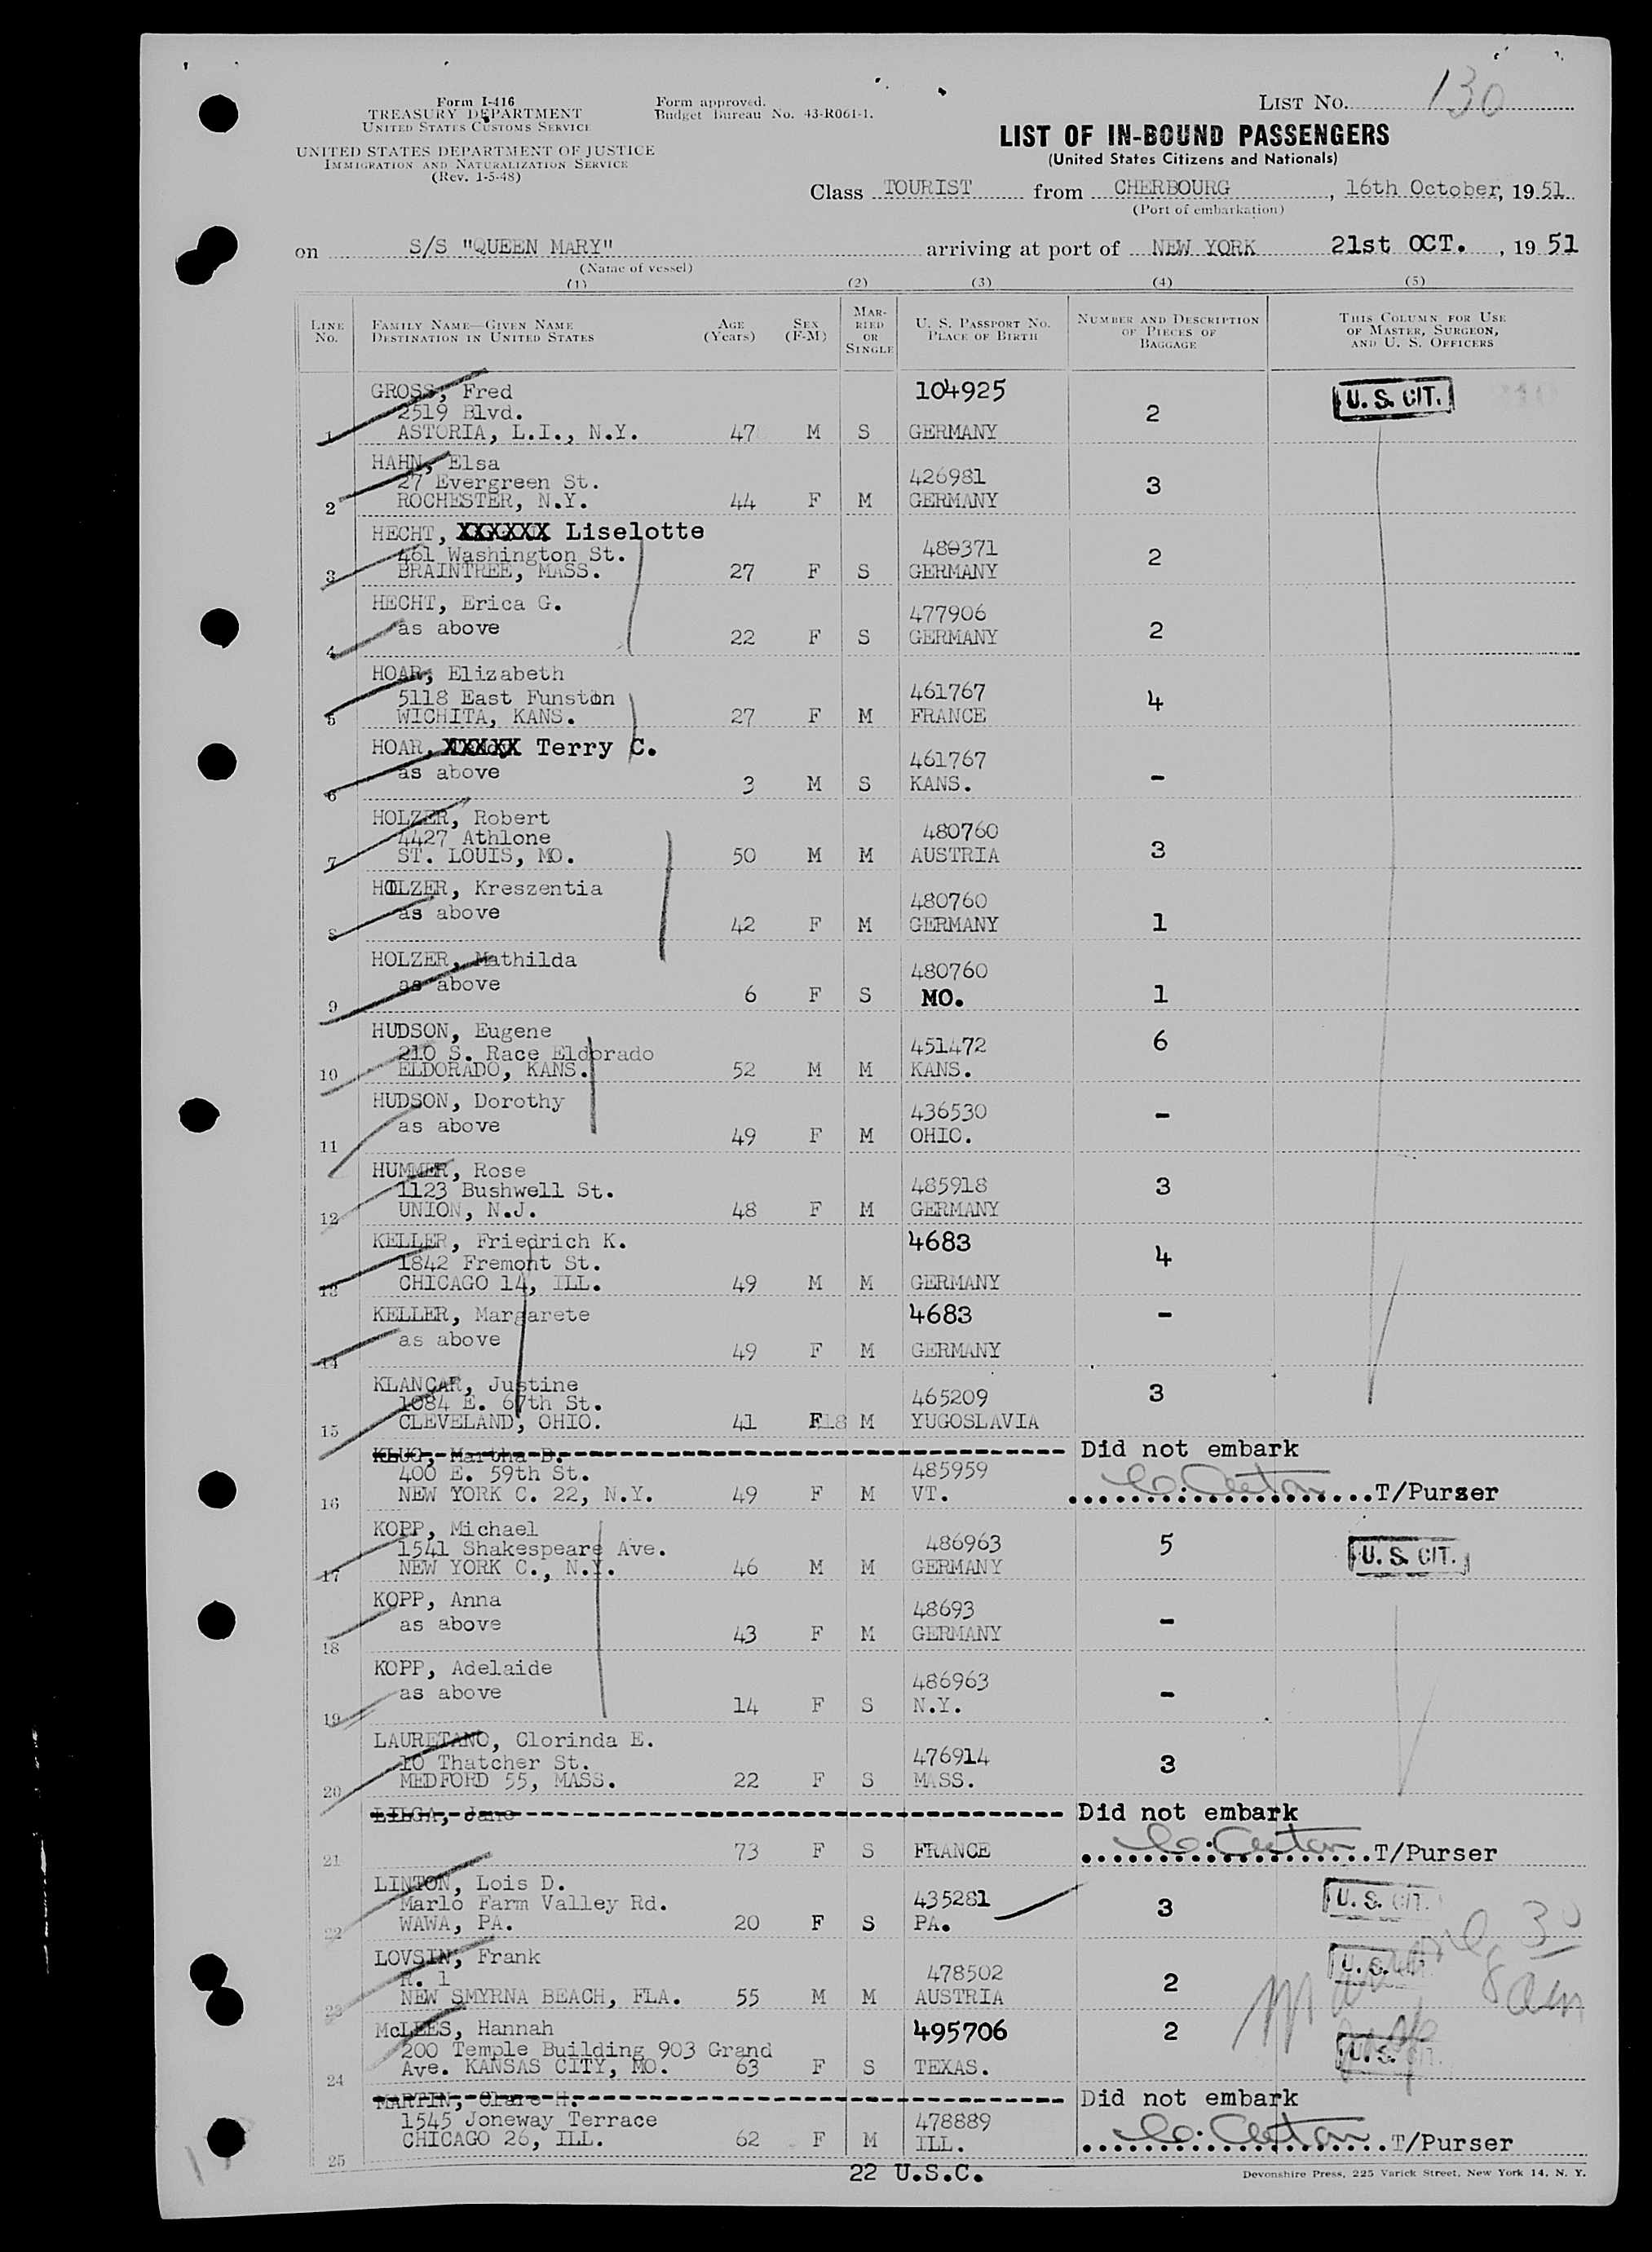 Form I-416
TREASURY DEPARTMENT
UNITED STATES CUSTOMS SERVICE
UNITED STATES DEPARTMENT OF JUSTICE
IMMIGRATION AND NATURALIZATION SERVICE
(Rev. 1-5-48)
Form approved.
Budget Bureau No. 43-R061-1.
LIST NO. 130
LIST OF IN-BOUND PASSENGERS
(United States Citizens and Nationals)
Class TOURIST from CHERBOURG, 16th October, 19 51
(Port of embarkation)
on S/S "QUEEN MARY" arriving at port of NEW YORK 21st OCT., 19 51
(Name of vessel)
(1) (2) (3) (4) (5)
LINE NO.
FAMILY NAME—GIVEN NAME
DESTINATION IN UNITED STATES
AGE (Years)
SEX (F-M)
MARRIED OR SINGLE
U. S. PASSPORT NO.
PLACE OF BIRTH
NUMBER AND DESCRIPTION OF PIECES OF BAGGAGE
THIS COLUMN FOR USE OF MASTER, SURGEON, AND U. S. OFFICERS
GROSS, Fred 104925 U. S. CIT.
2519 Blvd. 2
1 ASTORIA, L.I., N.Y. 47 M S GERMANY
HAHN, Elsa
27 Evergreen St. 426981 3
2 ROCHESTER, N.Y. 44 F M GERMANY
HECHT, XXXXXX Liselotte
461 Washington St. 480371 2
3 BRAINTREE, MASS. 27 F S GERMANY
HECHT, Erica G. 477906
as above 2
4 22 F S GERMANY
HOAR, Elizabeth
5118 East Funston 461767 4
5 WICHITA, KANS. 27 F M FRANCE
HOAR, XXXXX Terry C. 461767
as above -
6 3 M S KANS.
HOLZER, Robert
4427 Athlone 480760 3
7 ST. LOUIS, MO. 50 M M AUSTRIA
HOLZER, Kreszentia 480760
as above 1
8 42 F M GERMANY
HOLZER, Mathilda 480760
as above 1
9 6 F S MO.
HUDSON, Eugene 6
210 S. Race Eldorado 451472
10 ELDORADO, KANS. 52 M M KANS.
HUDSON, Dorothy 436530 -
as above
11 49 F M OHIO.
HUMMER, Rose
1123 Bushwell St. 485918 3
12 UNION, N.J. 48 F M GERMANY
KELLER, Friedrich K. 4683
1842 Fremont St. 4
13 CHICAGO 14, ILL. 49 M M GERMANY
KELLER, Margarete 4683 -
as above
14 49 F M GERMANY
KLANCAR, Justine 3
1084 E. 67th St. 465209
15 CLEVELAND, OHIO. 41 F M YUGOSLAVIA
KLUG, Martha B. Did not embark
400 E. 59th St. 485959
16 NEW YORK C. 22, N.Y. 49 F M VT. T/Purser
KOPP, Michael
1541 Shakespeare Ave. 486963 5 U. S. CIT.
17 NEW YORK C., N.Y. 46 M M GERMANY
KOPP, Anna 48693
as above -
18 43 F M GERMANY
KOPP, Adelaide 486963
as above -
19 14 F S N.Y.
LAURETANO, Clorinda E.
10 Thatcher St. 476914 3
20 MEDFORD 55, MASS. 22 F S MASS.
LILGA, Jane Did not embark
21 73 F S FRANCE T/Purser
LINTON, Lois D. U. S. CIT.
Marlo Farm Valley Rd. 435281 3
22 WAWA, PA. 20 F S PA.
LOVSIN, Frank
R. 1 478502 2 U. S.
23 NEW SMYRNA BEACH, FLA. 55 M M AUSTRIA
McLEES, Hannah 495706 2
200 Temple Building 903 Grand U. S.
24 Ave. KANSAS CITY, MO. 63 F S TEXAS.
MARTIN, Clare H. Did not embark
1545 Joneway Terrace 478889
25 CHICAGO 26, ILL. 62 F M ILL. T/Purser
22 U.S.C.
Devonshire Press, 225 Varick Street, New York 14, N. Y.